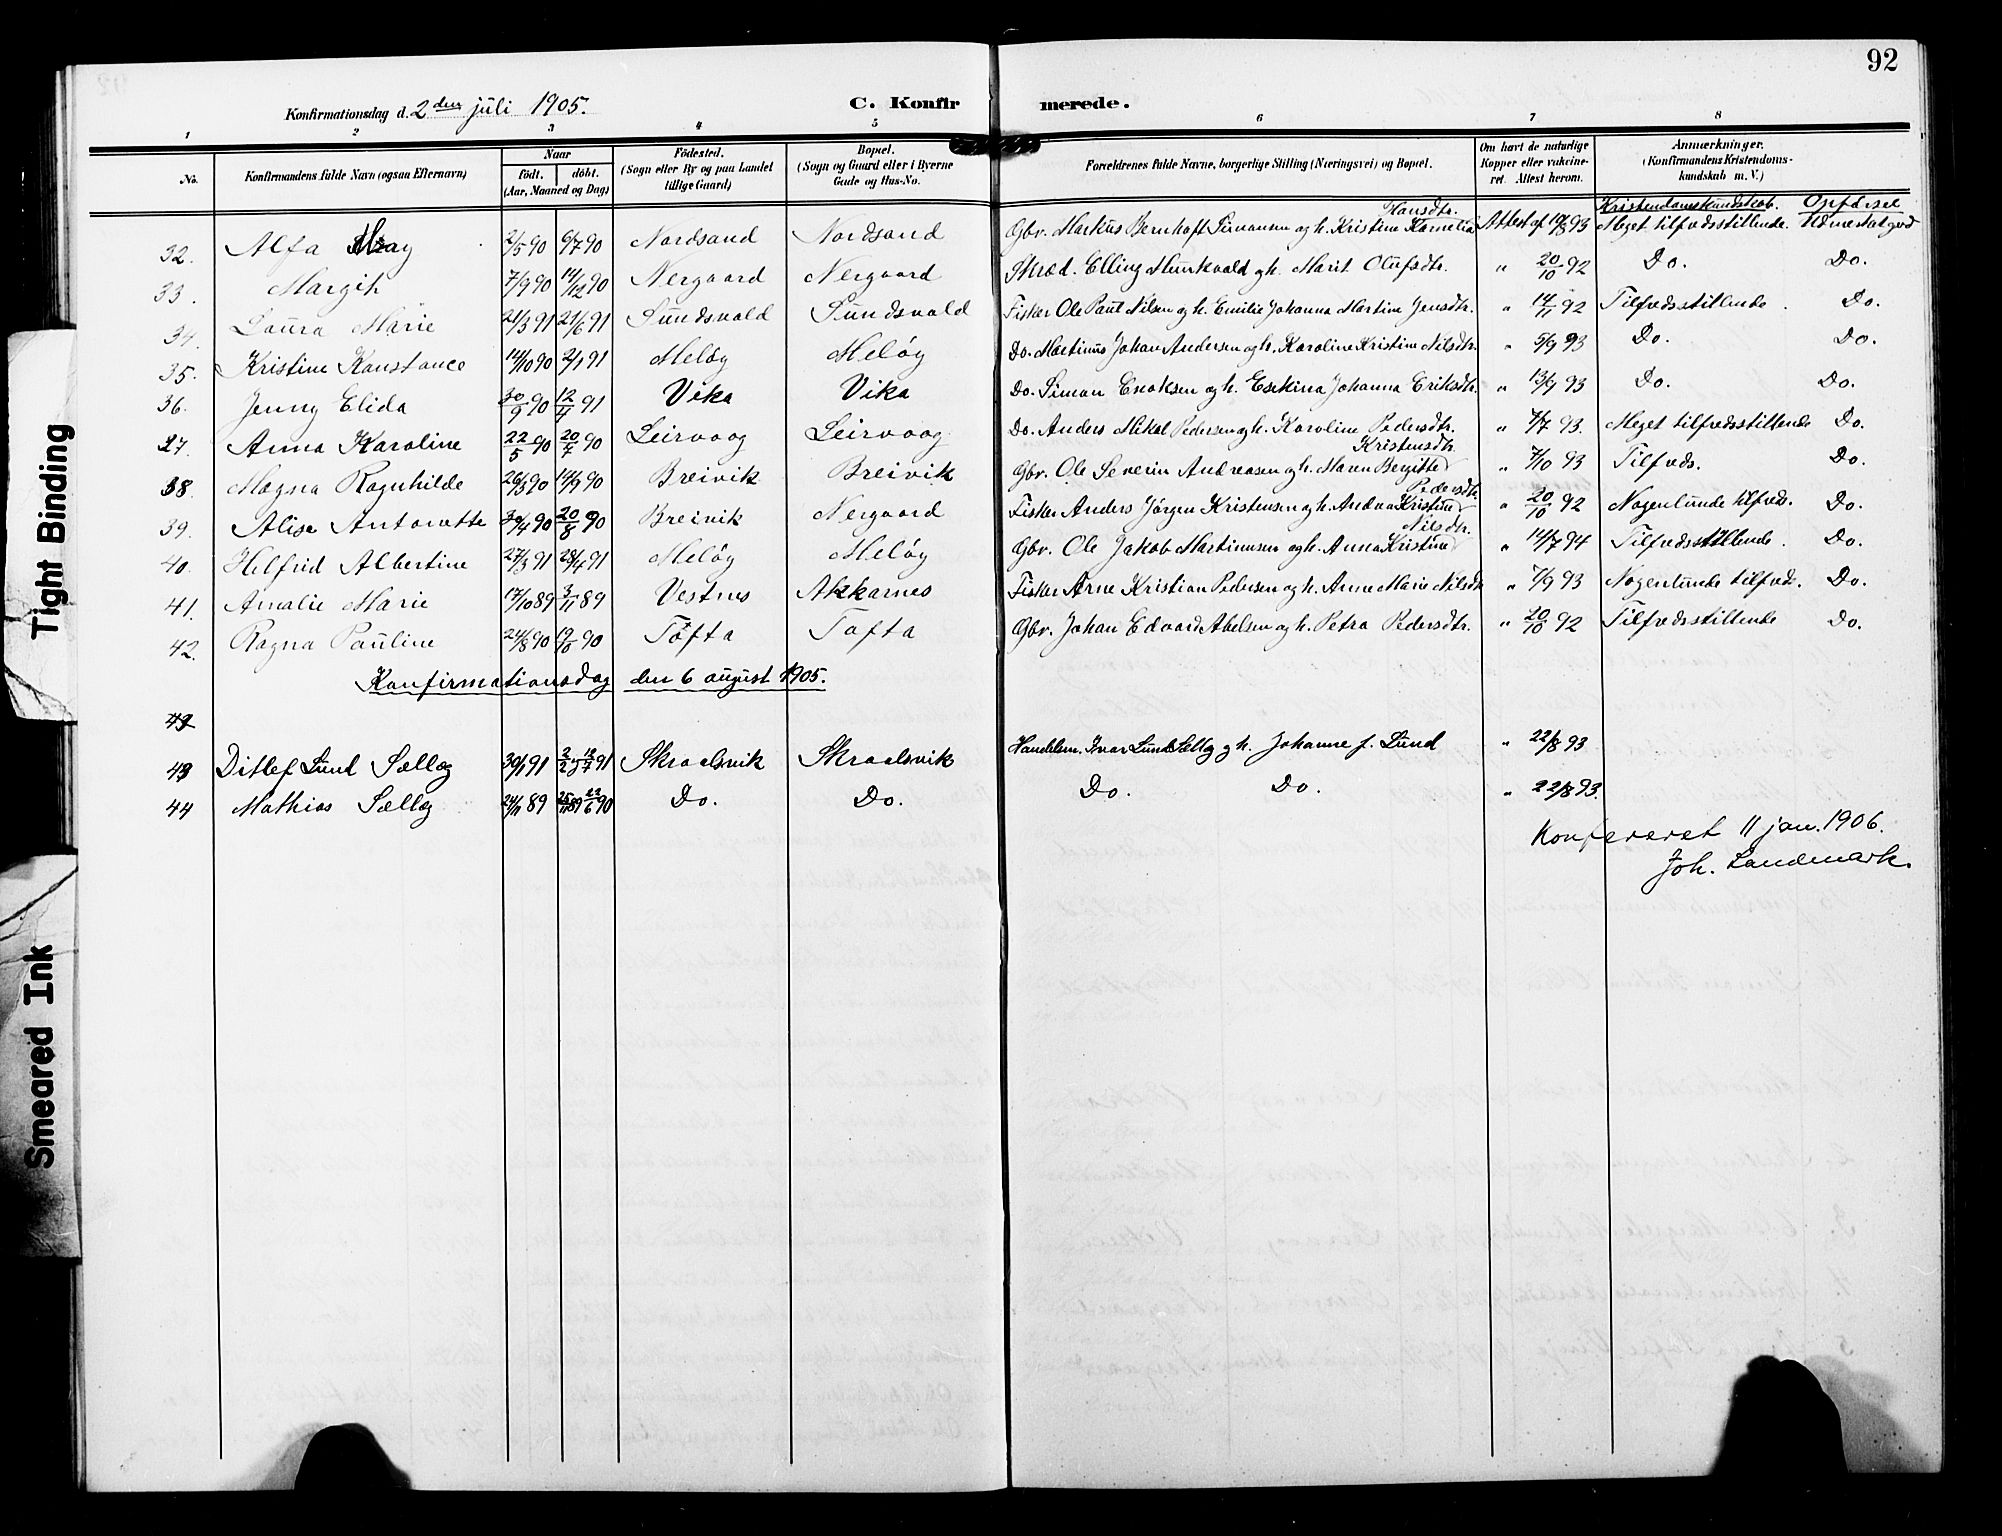 92
Konfirmationsdag d. 2den juli 1905. C. Konfir merede.
1 2 3 4 5 6 7 8
No. Konfirmandens fulde Navn (ogsaa Efternavn) Naar födt. döbt. (Aar, Maaned og Dag) Födested. (Sogn eller By og paa Landet tillige Gaard) Bopæl. (Sogn og Gaard eller i Byerne Gade og Hus-No. Forældrenes fulde Navne, borgerlige Stilling (Næringsvei) og Bopæl. Om havt de naturlige Kopper eller vakcineret. Attest herom. Anmærkninger. (Konfirmandens Kristendomskundskab m. V.)
Kristendomskundskab. Opförsel
32. Alfa May 2/5 90 6/7 90 Nordsand Nordsand Gbr. Markus Bernhoft Simonsen og h. Kristine Kornelia Hansdtr. Attest af 19/8 93 Meget tilfredsstillende. Udmerket god
33. Margit 7/9 90 14/12 90 Nergaard Nergaard Skræd. Elling Munkvold og h. Marit Olufsdtr. " 20/10 92 Do. Do.
34. Laura Marie 21/3 91 21/6 91 Sundsvold Sundsvold Fisker Ole Paul Nilsen og h. Emilie Johanna Martine Jensdtr. " 14/11 92 Tilfredsstillende. Do.
35. Kristine Konstance 14/10 90 2/1 91 Melöy Melöy Do. Martinus Johan Andersen og h. Karoline Kristine Nilsdtr. " 5/9 93 Do. Do.
36. Jenny Elida 30/9 90 12/4 91 Vika Vika Do. Simon Enoksen og h. Esekina Johanna Eriksdtr. " 13/9 93 Do. Do.
37. Anna Karoline 22/5 90 20/7 90 Leirvaag Leirvaag Do. Anders Mikal Pedersen og h. Karoline Pedersdtr. " 7/7 93. Meget tilfredsstillende Do.
38. Magna Ragnhilde 26/3 90 14/9 90 Breivik Breivik Gbr. Ole Severin Andreasen og h. Maren Bergitte Kristensdtr. " 7/10 93 Tilfreds. Do.
39. Alise Antonette 30/4 90 20/8 90 Breivik Nergaard Fisker Anders Jørgen Kristensen og h. Andrea Kristine Pedersdtr. " 20/10 92 Nogenlunde tilfreds. Do.
40. Helfrid Albertine 27/3 91 28/4 91 Melöy Melöy Gbr. Ole Jakob Martinusen og h. Anna Kristine Nilsdtr. " 14/7 94 Tilfredsstillende. Do.
41. Amalie Marie 17/10 89 3/11 89 Vestnes Akkarnes Fisker Arne Kristian Pedersen og h. Anne Marie Nilsdtr " 7/9 93 Nogenlunde tilfreds. Do.
42. Ragna Pauline 24/8 90 90 Töfta Tofta Gbr. Johan Edvard Abelsen og h. Petra Pedersdtr. " 20/10 92 Tilfredsstillende Do.
Konfirmationsdag den 6 august 1905.
43 Ditlef Lund Sællæg 30/1 91 91 Skraalsvik Skraalsvik Handelsm. Ivar Lund og h. Johanne f. Lund " 22/8 93
44 Mathias 24/11 89 90 Do. Do. Do. Do. " 22/8 93.
Konfereret 11 jan. 1906.
Joh. Landmark.
Tight Binding
Smeared Ink